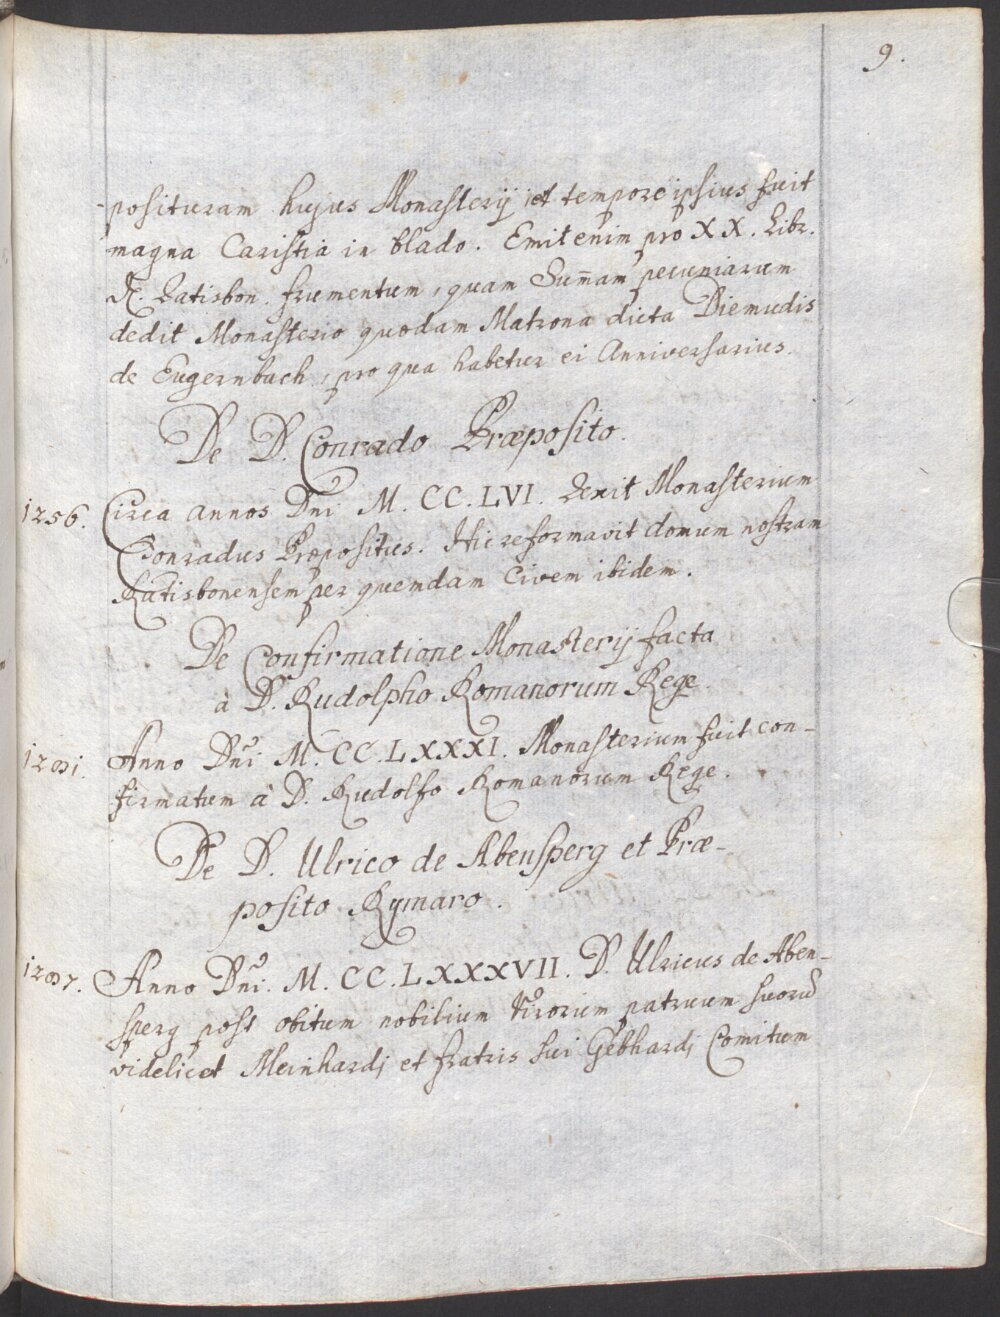 9.
posituram hujus Monasterij, et tempore ipsius fuit
magna Caristia in blado. Emit enim pro XX. Libr.
Ratisbon. frumentum, quam Sum̄am pecuniarum
dedit Monasterio quodam Matrona dicta Diemudis
de Eugernbach, pro qua habetur ei Anniversarius.
De D. Conrado Præposito.
1256. Circa annos Dni M. CC. LVI. Rexit Monasterium
Conradus Præpositus. Hic reformavit domum nostram
Ratisbonensem per quemdam Civem ibidem.
De Confirmatione Monasterij facta
à D. Rudolpho Romanorum Rege
1281. Anno Dni. M. CC. LXXXI. Monasterium fuit con-
firmatum à D. Rudolfo Romanorum Rege.
De D. Ulrico de Abensperg et Præ-
posito Rymaro.
1287. Anno Dni. M. CC. LXXXVII. D. Ulricus de Aben-
sperg post obitum nobilium Virorum patruum suorū
videlicet Meinhardj et fratris sui Gebhardj Comitum